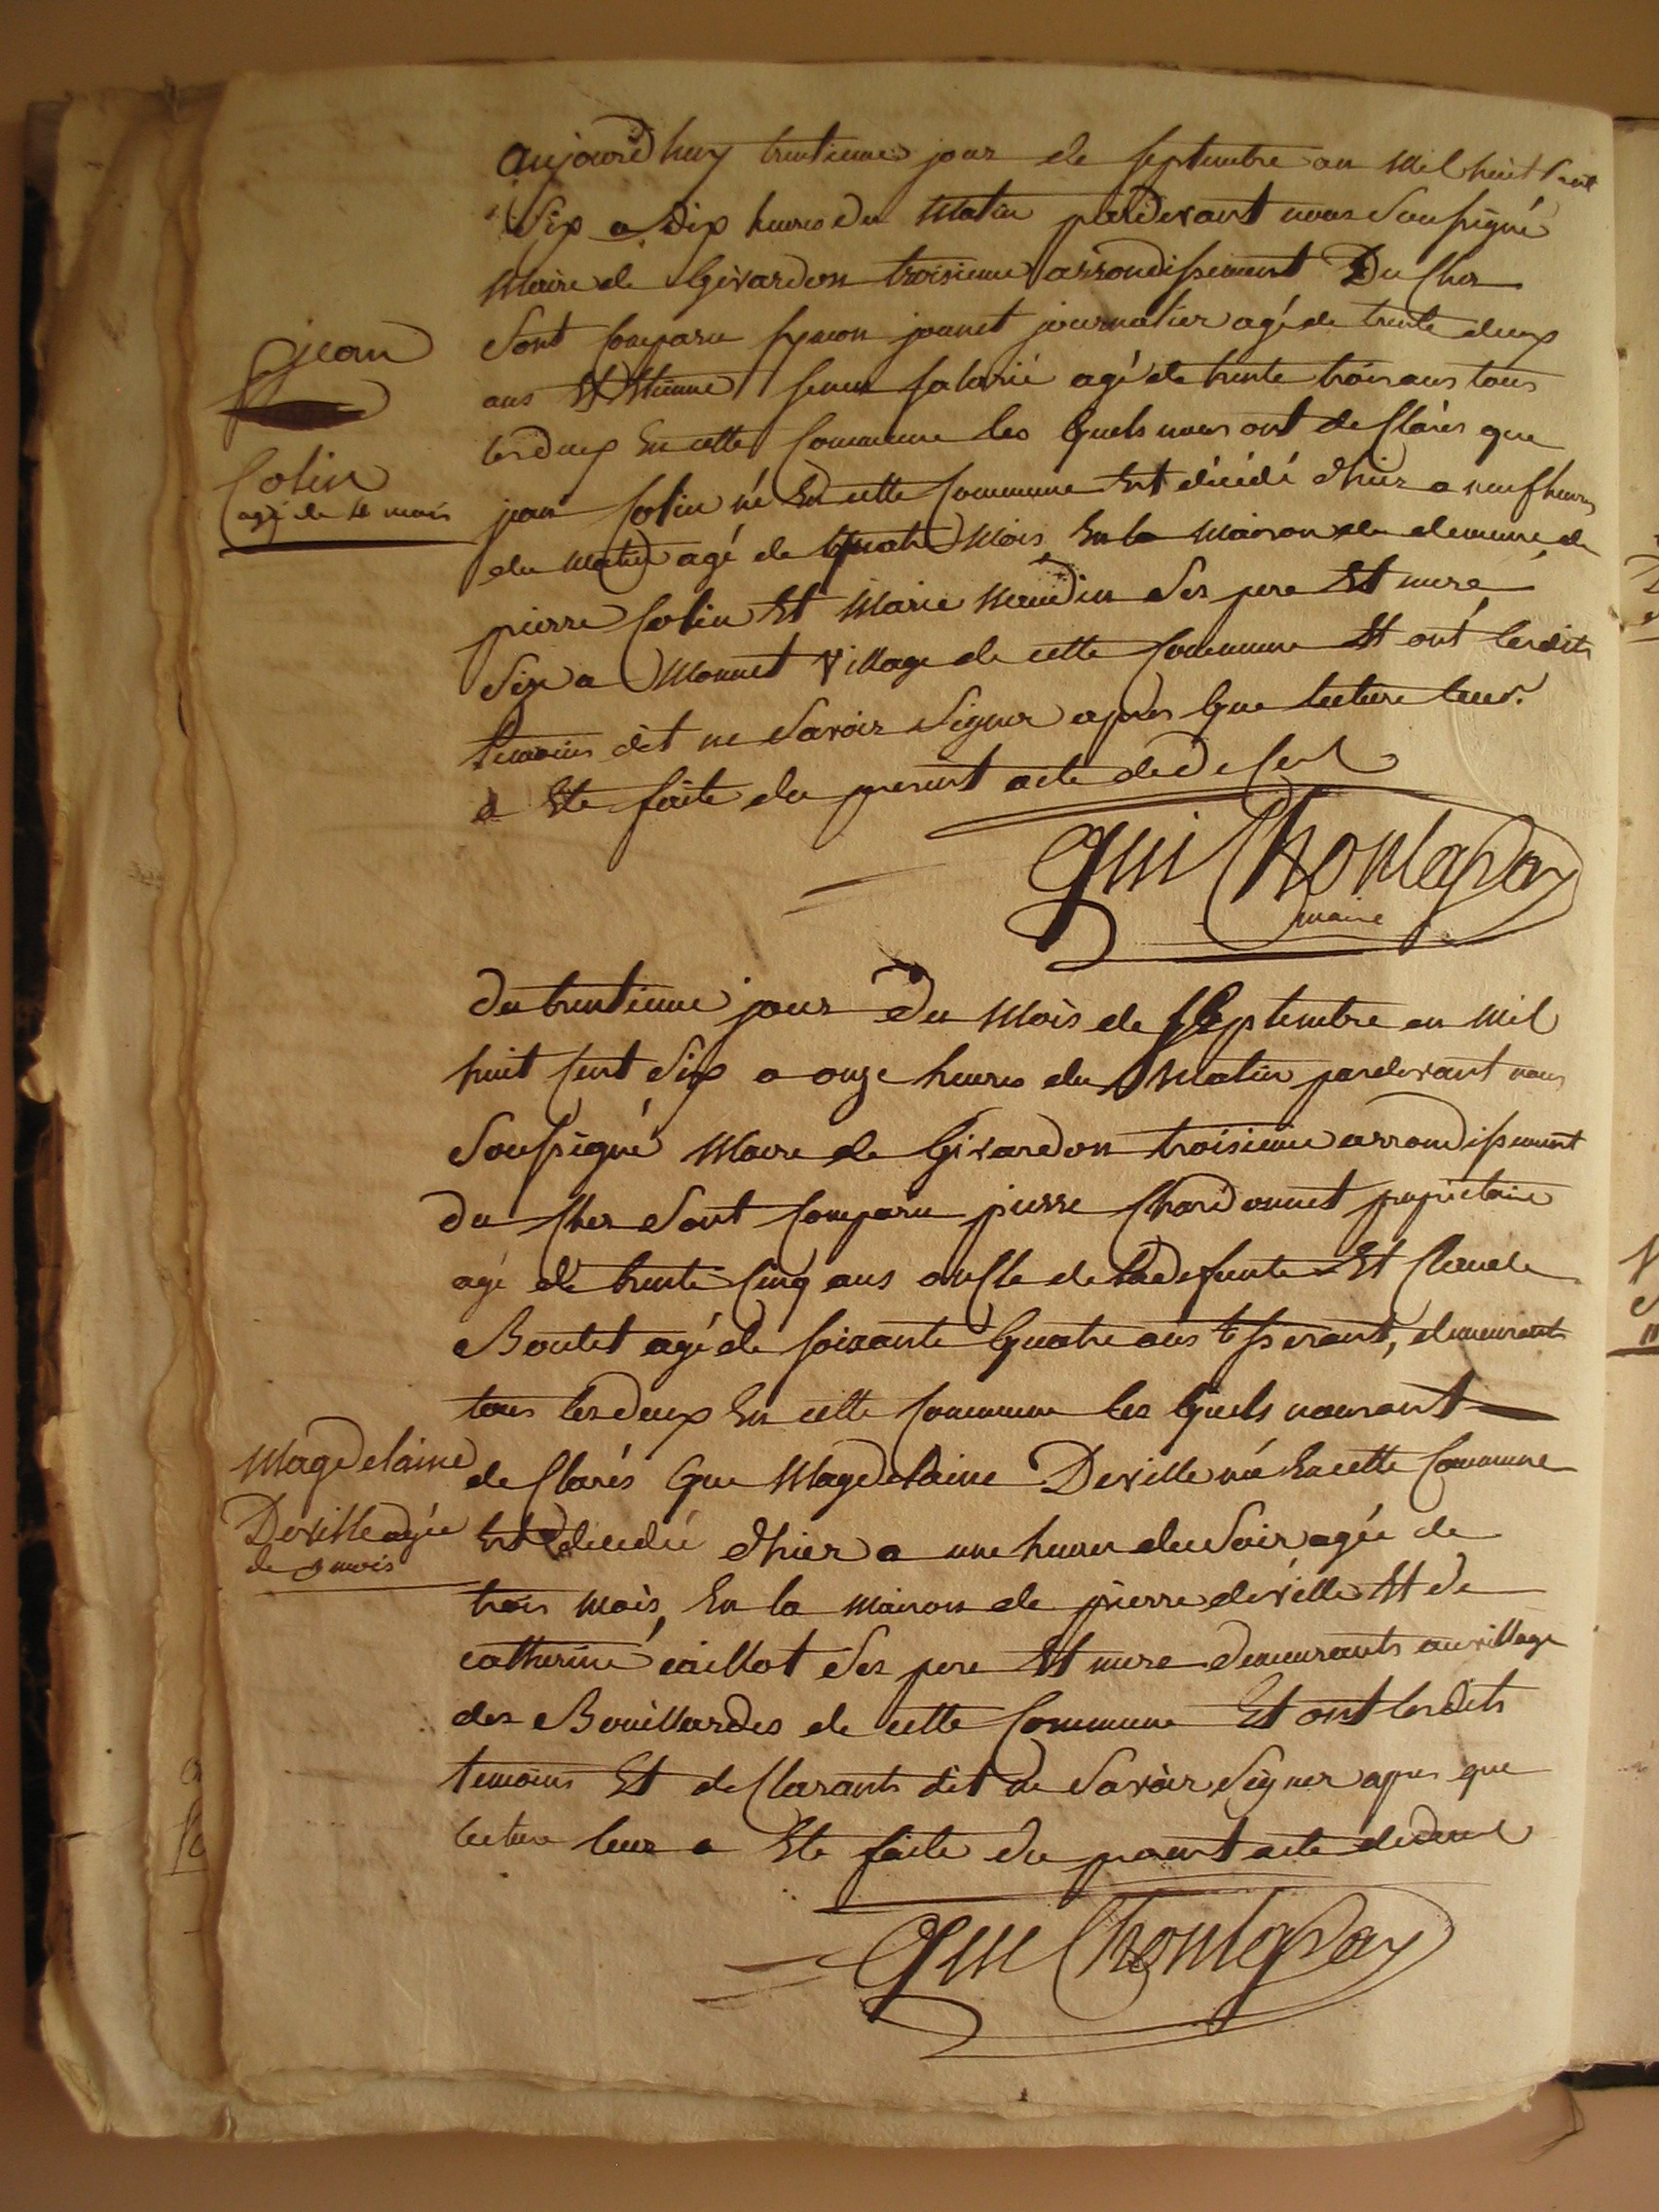 aujourdhuy trentieme jour de septembre an mil huit Cent
Six a dix heures du Matin pardevant nous Soussigné
Maire de Givardon troisieme arrondissement Du Cher
Sont Comparu Symon jounet journalier agé de trente deux
ans Et Etienne salarié agé de trente trois ans tous
les deux En cette Commune les quels nous ont de Clarés que
jean Colin né En cette Commune Est décédé d'hier a neuf heures
du matin agé de quatre Mois En la Maison de demeure de
pierre Colin Et Marie Maudin Ses pere Et mere
Sise a Monnet Village de cette Commune Et ont lesdits
temoins dit ne Savoir Signer apres que lecture leur
a Ete faite du present acte de
jean
Colin
agé de 4 mois
gui Chonlagray
maire
du trentieme jour Du Mois de Septembre an Mil
huit Cent Six a onze heures du Matin pardevant nous
Soussigné Maire de Givardon troisieme arrondissement
du Cher Sont Comparu pierre Chardonnet propriétaire
agé de trente Cinq ans oncle de la defunte Et Claude
Boutet agé de soixante quatre ans tisserant, demeurants
tous les deux En cette Commune les quels nous ont
de Clarés que Magdelaine Deville né En cette Commune
Est décédée d'hier a une heure du Soir agée de
trois Mois, En la Maison de pierre deville Et de
catherine caillot Ses pere Et mere Demeurants au village
des Bouillardes de cette Commune Et ont lesdits
temoins Et de Clarants dit ne Savoir Signer apres que
lecture leur a Ete faite du present acte de
Magdelaine
Deville agée
de 3 mois
gui Chonlagray